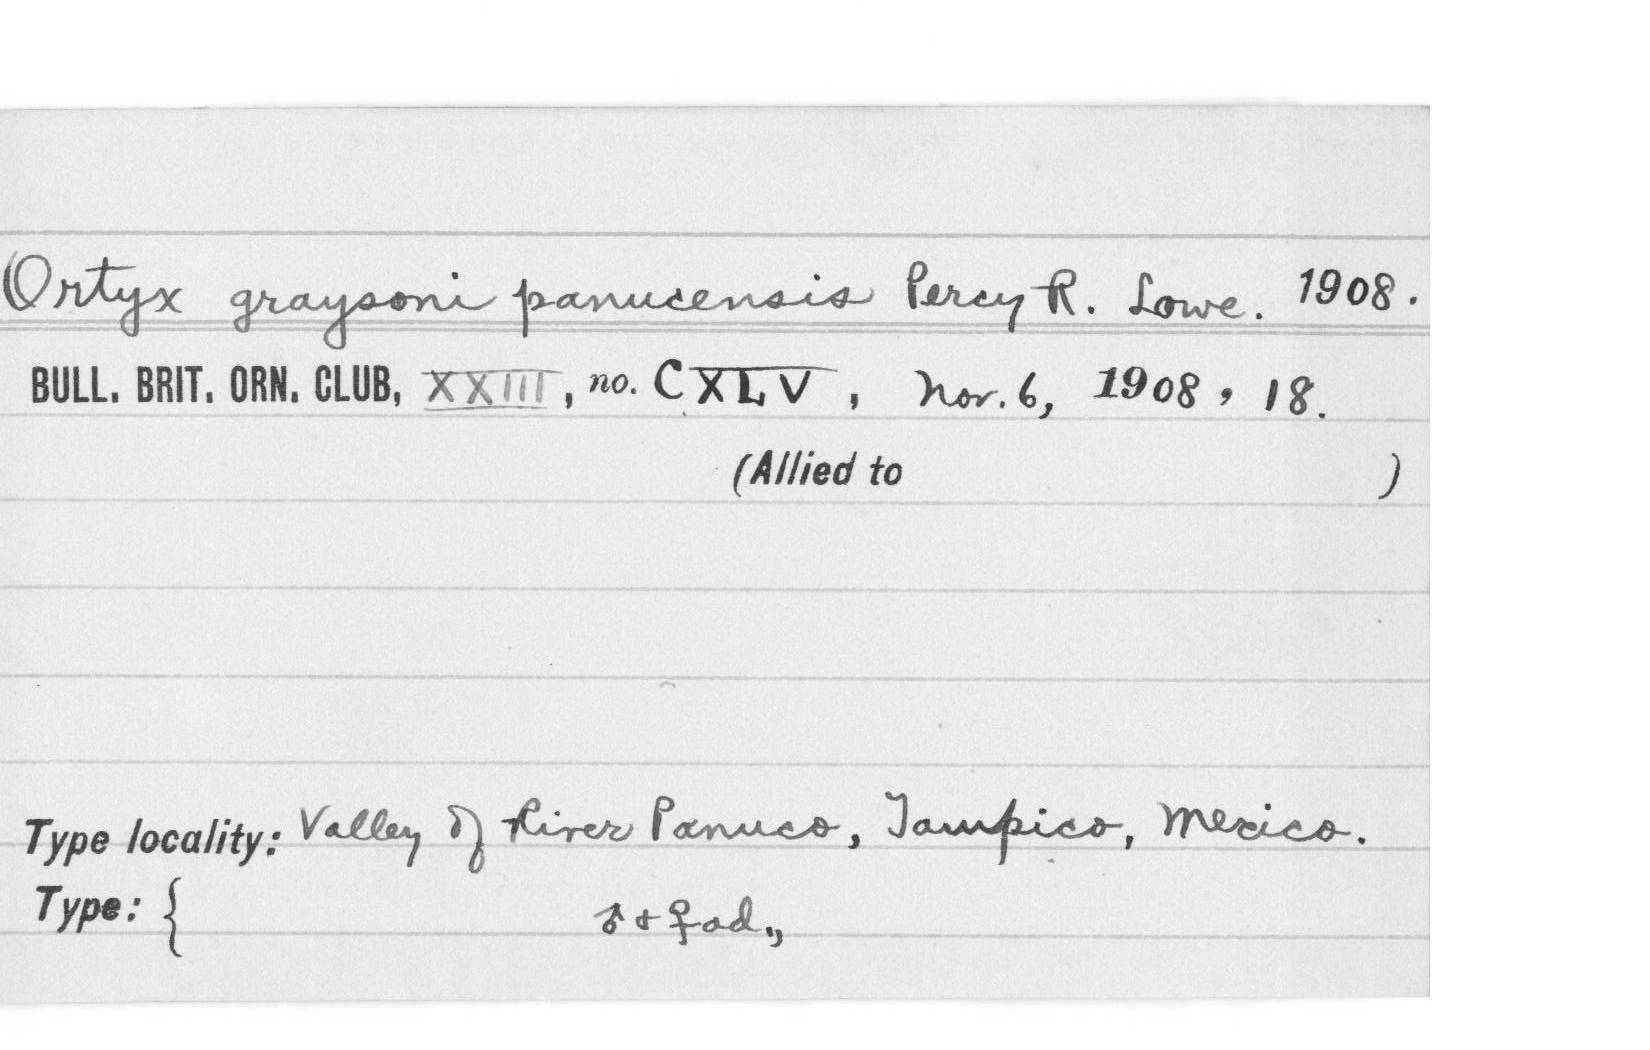 Ortyx graysoni panucensis Percy R. Lowe. 1908.
BULL. BRIT. ORN. CLUB, XXIII, no. CXLV, Nov. 6, 1908, 18.
(Allied to )
Type locality: Valley of River Panuco, Tampico, Mexico.
Type: { ♂ + ♀ ad.,